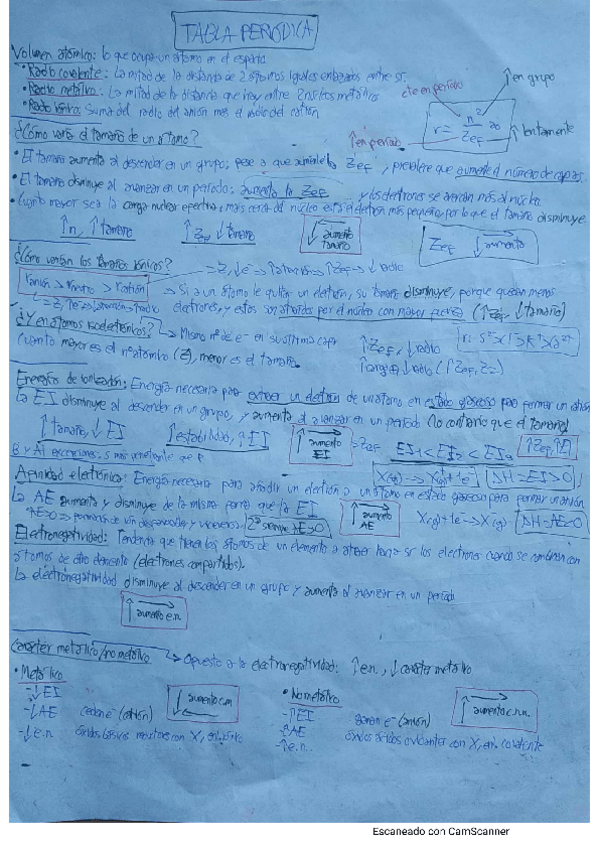 TABLA PERIÓDICA
Volumen atómico: lo que ocupa un átomo en el espacio
• Radio covalente: La mitad de la distancia de 2 átomos iguales enlazados entre sí.
• Radio metálico: La mitad de la distancia que hay entre 2 núcleos metálicos
• Radio iónico: Suma del radio del anión más el radio del catión.
cte en período
↑ en grupo
r = n²/Zef a0
↑ en período
↑ lentamente
¿Cómo varía el tamaño de un átomo?
• El tamaño aumenta al descender en un grupo, pese a que aumente la Zef, prevalece que aumente el número de capas.
• El tamaño disminuye al avanzar en un período: aumenta la Zef y los electrones se acercan más al núcleo.
• Cuanto mayor sea la carga nuclear efectiva, más cerca del núcleo está el electrón más pequeño, por lo que el tamaño disminuye
↑n, ↑tamaño
↑Zef ↓tamaño
aumento tamaño
Zef ↓aumento
¿Cómo varían los tamaños iónicos?
ranión > rneutro > rcatión
→ Si a un átomo le quitan un electrón, su tamaño disminuye, porque quedan menos
electrones, y estos son atraídos por el núcleo con mayor fuerza (↑Zef ↓tamaño)
¿Y en átomos isoelectrónicos?
→ Mismo nº de e⁻ en su última capa
Cuanto mayor es el nº atómico (Z), menor es el tamaño.
↑Zef, ↓radio
Energía de ionización: Energía necesaria para extraer un electrón de un átomo en estado gaseoso para formar un catión
La EI disminuye al descender en un grupo, y aumenta al avanzar en un período (lo contrario que el tamaño)
↑tamaño, ↓EI
↑estabilidad, ↑EI
aumento EI
EI1 < EI2 < EI3
↑Zef, ↑EI
B y Al excepciones, s más penetrante que p
X(g) → X⁺(g) + 1e⁻
ΔH = EI > 0
Afinidad electrónica: Energía necesaria para añadir un electrón a un átomo en estado gaseoso para formar un anión
La AE aumenta y disminuye de la misma forma que la EI
aumento AE
X(g) + 1e⁻ → X⁻(g)
Electronegatividad: Tendencia que tienen los átomos de un elemento a atraer hacia sí los electrones cuando se combinan con
átomos de otro elemento (electrones compartidos).
La electronegatividad disminuye al descender en un grupo y aumenta al avanzar en un período
aumento e.n.
Carácter metálico/no metálico
→ Opuesto a la electronegatividad: ↑e.n., ↓carácter metálico
• Metálico
- ↓EI
- ↓AE
- ↓e.n
ceden e⁻ (catión)
aumento c.m
• No metálico
- ↑EI
- ↑AE
- ↑e.n.
ganan e⁻ (anión)
aumento c.n.m.
Escaneado con CamScanner